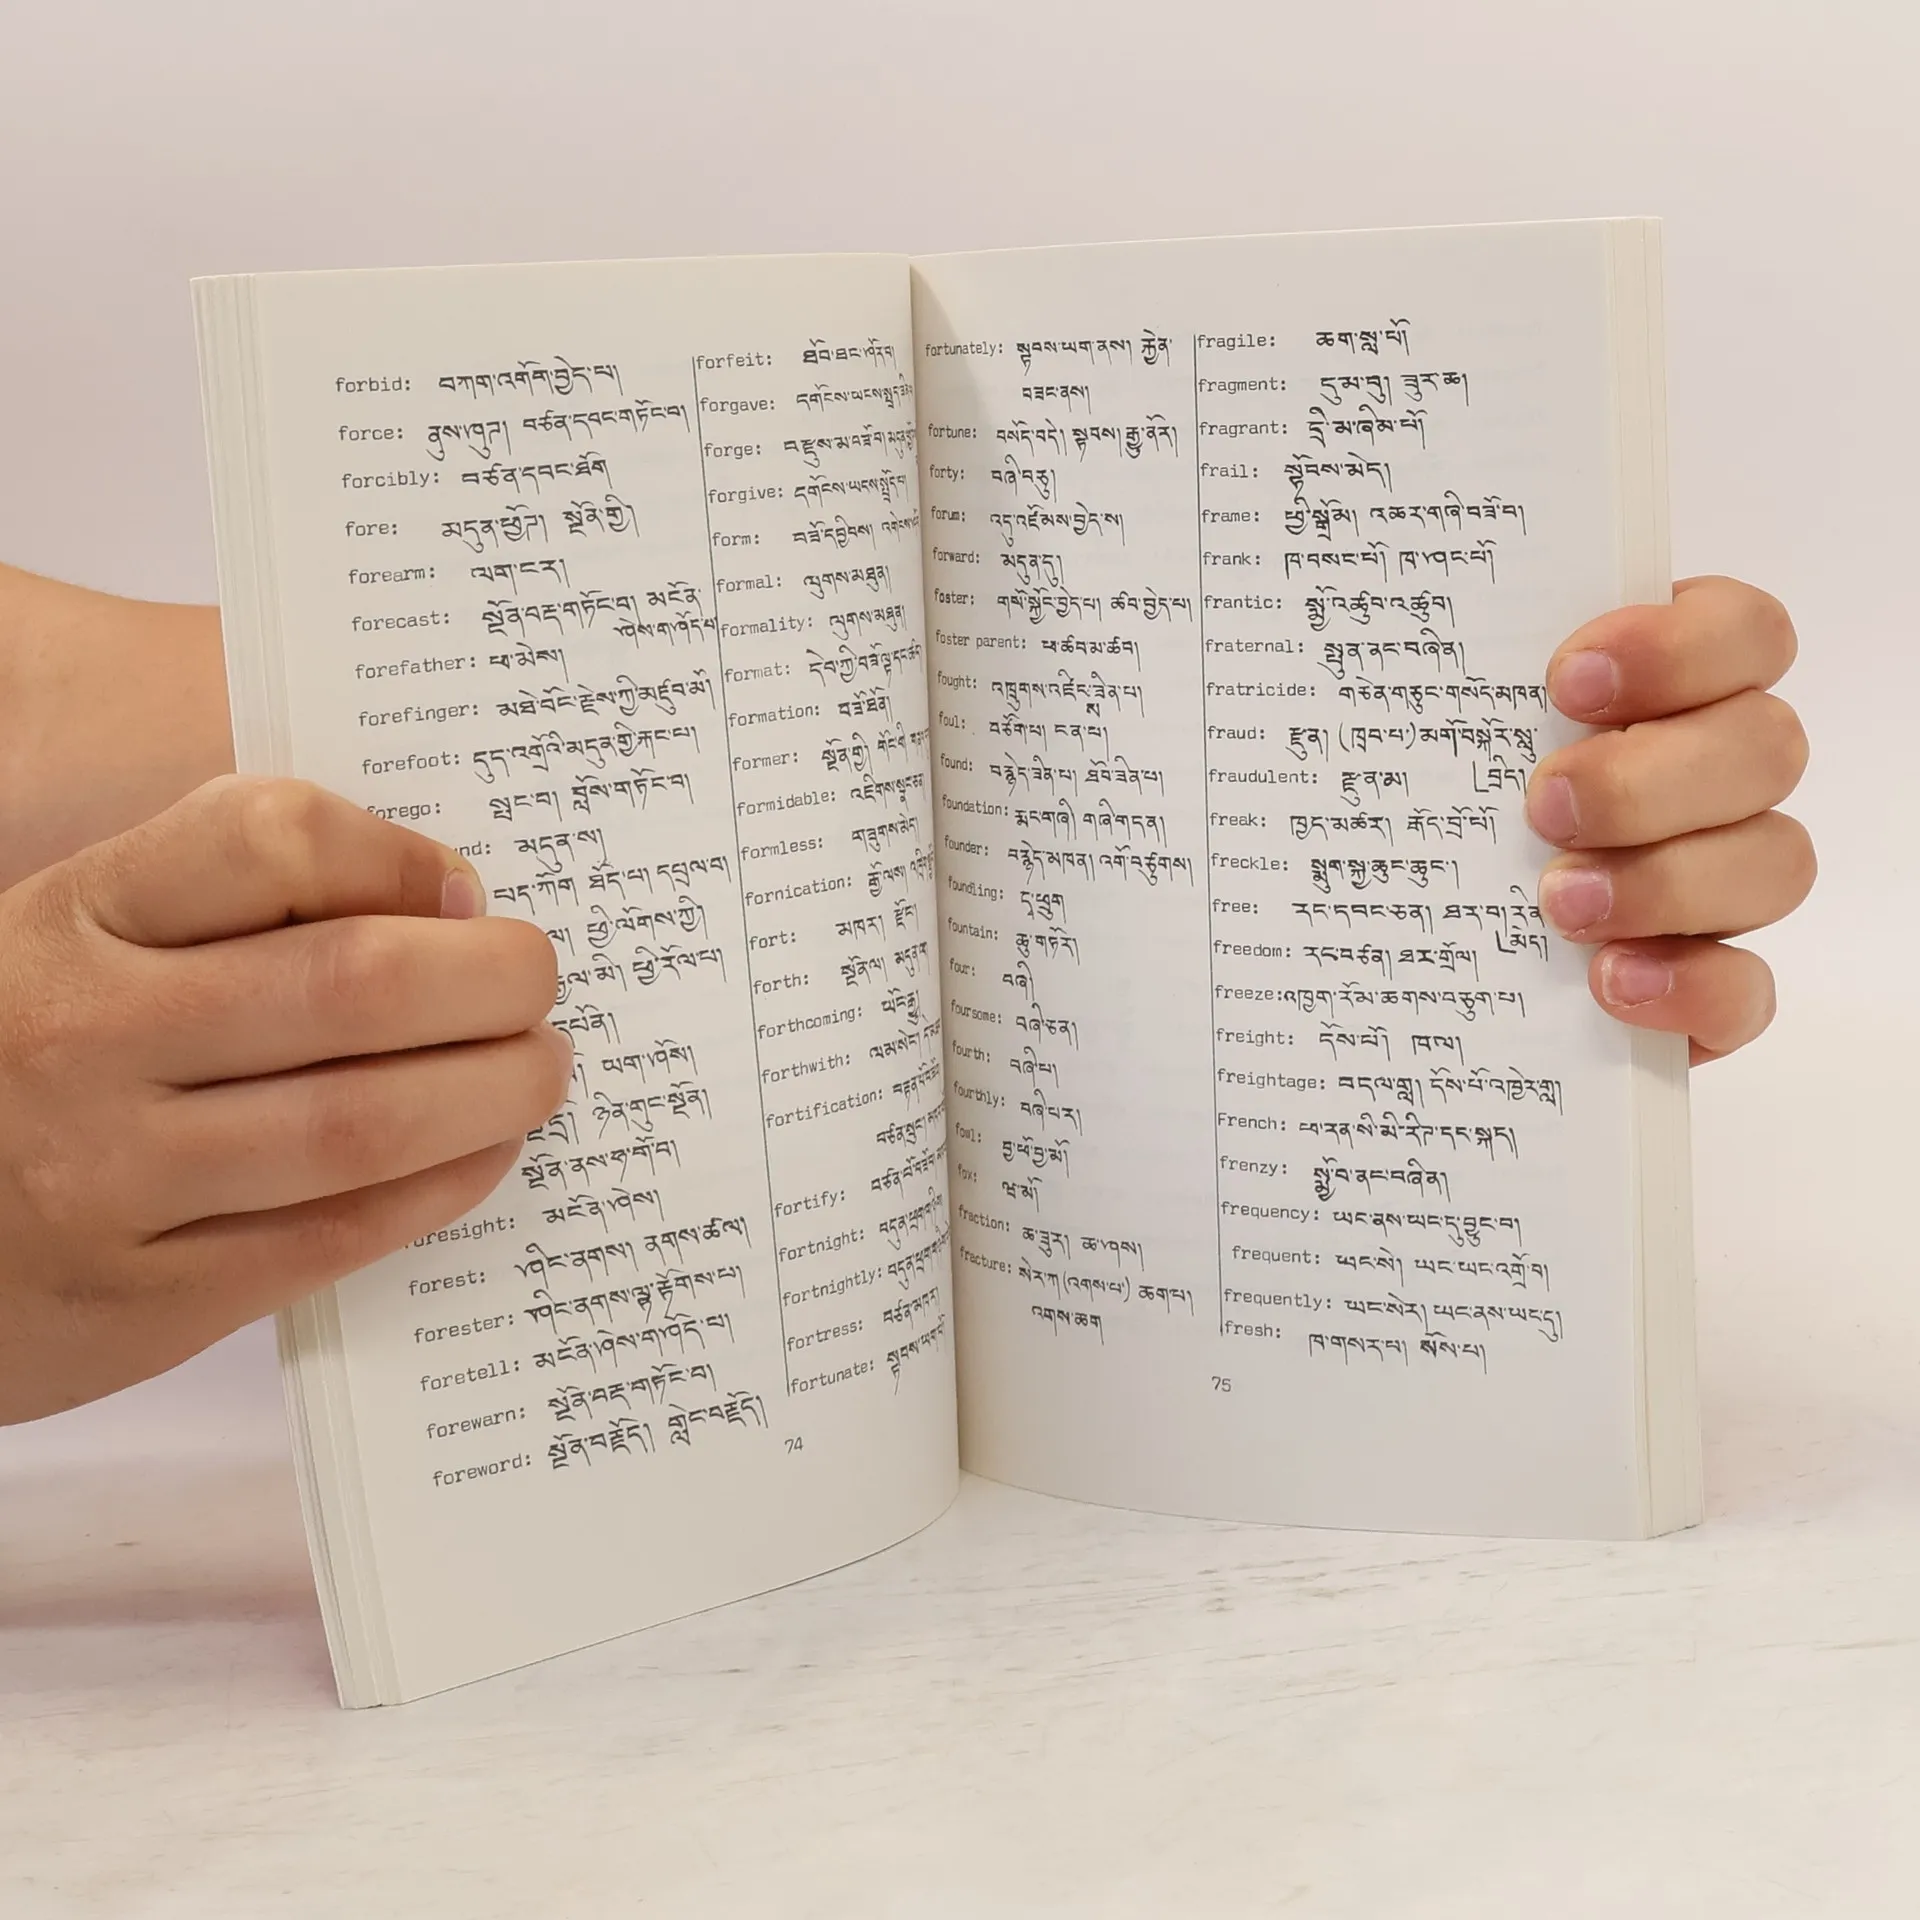 forbid: བཀག་འགོག་བྱེད་པ།
force: ནུས་ཤུཊ། བཙན་དབང་གཏོང་བ།
forcibly: བཙན་དབང་ཐོག
fore: མདུན་ཕྱོཊ། སྔོན་གྱི།
forearm: ལག་ངར།
forecast: སྔོན་བརྡ་གཏོང་བ། མངོན་
ཤེས་གཤོད་པ།
forefather: ཕ་མེས།
forefinger: མཐེ་བོང་རྗེས་ཀྱི་མཛུབ་མོ།
forefoot: དུད་འགྲོའི་མདུན་གྱི་རྐང་པ།
forego: སྤང་བ། བློས་གཏོང་བ།
མདུན་ས།
པད་ཀོག ཐོད་པ། དཔྲལ་བ།
ཕྱི་ལོགས་ཀྱི།
རྒྱལ་མི། ཕྱི་རོལ་པ།
དཔོན།
ཡག་ཤོས།
ཉིན་གུང་སྔོན།
སྔོན་ནས་ཧ་གོ་བ།
foresight: མངོན་ཤེས།
forest: ཤིང་ནགས། ནགས་ཚལ།
forester: ཤིང་ནགས་ལྟ་རྟོགས་པ།
foretell: མངོན་ཤེས་གཤོད་པ།
forewarn: སྔོན་བརྡ་གཏོང་བ།
foreword: སྔོན་བརྗོད། གླེང་བརྗོད།
forfeit: ཐོབ་ཐང་ཤོར་བ།
forgave: དགོངས་ཡངས་
forge: བརྫུས་མ་བཟོ་བ།
forgive: དགོངས་ཡངས་གཏོང་བ།
form: བཟོ་དབྱིབས།
formal: ལུགས་མཐུན།
formality: ལུགས་མཐུན།
format: དེབ་ཀྱི་བཟོ་ལྟ་དང་ཚད།
formation: བཟོ་ཐོན།
former: སྔོན་གྱི། གོང་གི
formidable: འཇིགས་སྣང་ཅན།
formless: གཟུགས་མེད།
fornication:
fort: མཁར། རྫོང།
forth: སྔོན་ལ།
forthcoming: ཡོང་རྒྱུ།
forthwith: ལམ་སེང།
fortification:
fortify:
fortnight: བདུན་ཕྲག་གཉིས།
fortnightly:
fortress: བཙན་མཁར།
fortunate: སྟབས་ཡག་པོ།
74
fortunately: སྟབས་ཡག་ནས། རྐྱེན་
བཟང་ནས།
fortune: བསོད་བདེ། སྟབས། རྒྱུ་ནོར།
forty: བཞི་བཅུ།
forum: འདུ་འཛོམས་བྱེད་ས།
forward: མདུན་དུ།
foster: གསོ་སྐྱོང་བྱེད་པ། ཚབ་བྱེད་པ།
foster parent: ཕ་ཚབ་མ་ཚབ།
fought: འཁྲུགས་འཛིང་
foul: བཙོག་པ། ངན་པ།
found: བརྙེད་ཟིན་པ། ཐོབ་ཟིན་པ།
foundation: རྨང་གཞི། གཞི་གདན།
founder: བརྙེད་མཁན། འགོ་བ་ཙུགས།
foundling: དྭ་ཕྲུག
fountain: ཆུ་གཏོར།
four: བཞི།
foursome: བཞི་ཅན།
fourth: བཞི་པ།
fourthly: བཞི་པར།
fowl: བྱ་ཕོ་བྱ་མོ།
fox: ཝ་མོ།
fraction: ཆ་ཟུར། ཆ་ཤས།
fracture: སེར་ཀ (འགས་པ་) ཆག་པ།
འགས་ཆག
fragile: ཆག་སླ་པོ།
fragment: དུམ་བུ། ཟུར་ཆ།
fragrant: དྲི་མ་ཞིམ་པོ།
frail: སྟོབས་མེད།
frame: ཕྱི་སྒྲོམ། འཆར་གཞི་བཟོ་བ།
frank: ཁ་བསང་པོ། ཁ་ཤང་པོ།
frantic: སྨྱོ་འཚུབ་འཚུབ།
fraternal: སྤུན་ནང་བཞིན།
fratricide: གཅེན་གཅུང་གསོད་མཁན།
fraud: རྫུན། (ཁྲབ་པ་) མགོ་བསྐོར་སླུ་
fraudulent: རྫུན་མ། བྲིད།
freak: ཁྱད་མཚར། རྒོད་བྲོ་པོ།
freckle: སྨུག་སྐྱ་ཆུང་ཆུང་།
free: རང་དབང་ཅན། ཐར་བ། རིན་
མེད།
freedom: རང་བཙན། ཐར་གྲོལ།
freeze: འཁྱག་རོམ་ཆགས་བཅུག་པ།
freight: དོས་པོ། ཁལ།
freightage: བདལ་གླ། དོས་པོ་འཁྱེར་གླ།
French: ཕ་རན་སི་མི་རིཊ་དང་སྐད།
frenzy: སྨྱོ་བ་ནང་བཞིན།
frequency: ཡང་ནས་ཡང་དུ་བྱུང་བ།
frequent: ཡང་སེ། ཡང་ཡང་འགྲོ་བ།
frequently: ཡང་སེར། ཡང་ནས་ཡང་དུ།
fresh: ཁ་གསར་པ། སོས་པ།
75